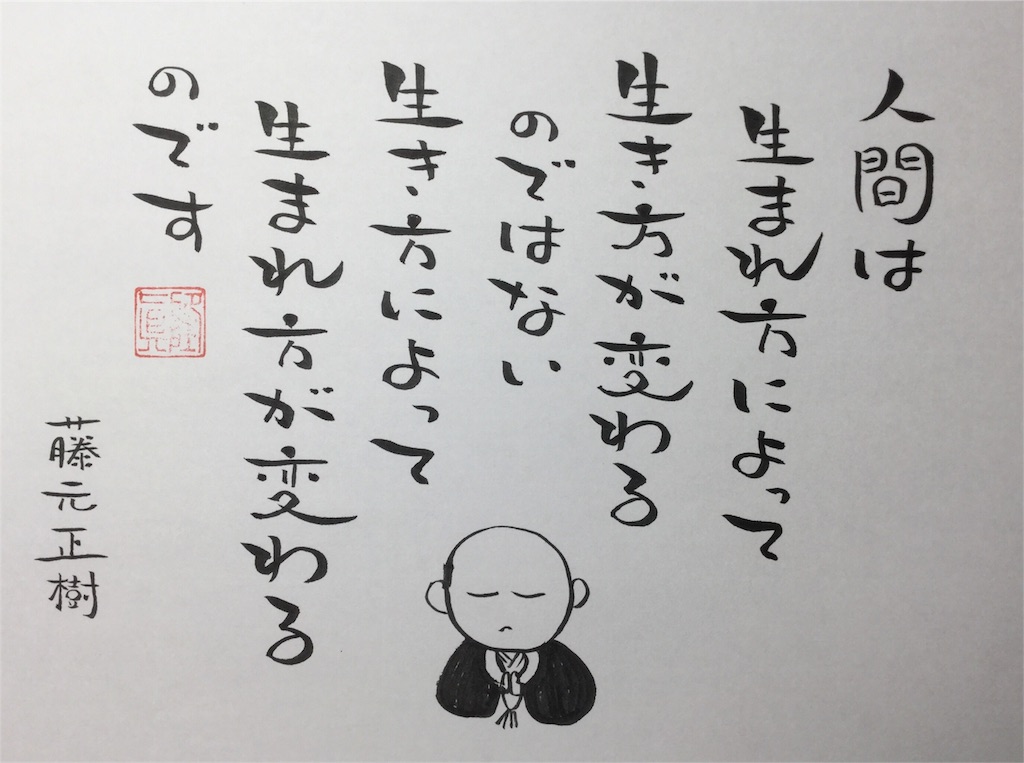 人間は
生まれ方によって
生き方が変わる
のではない
生き方によって
生まれ方が変わる
のです
藤元正樹